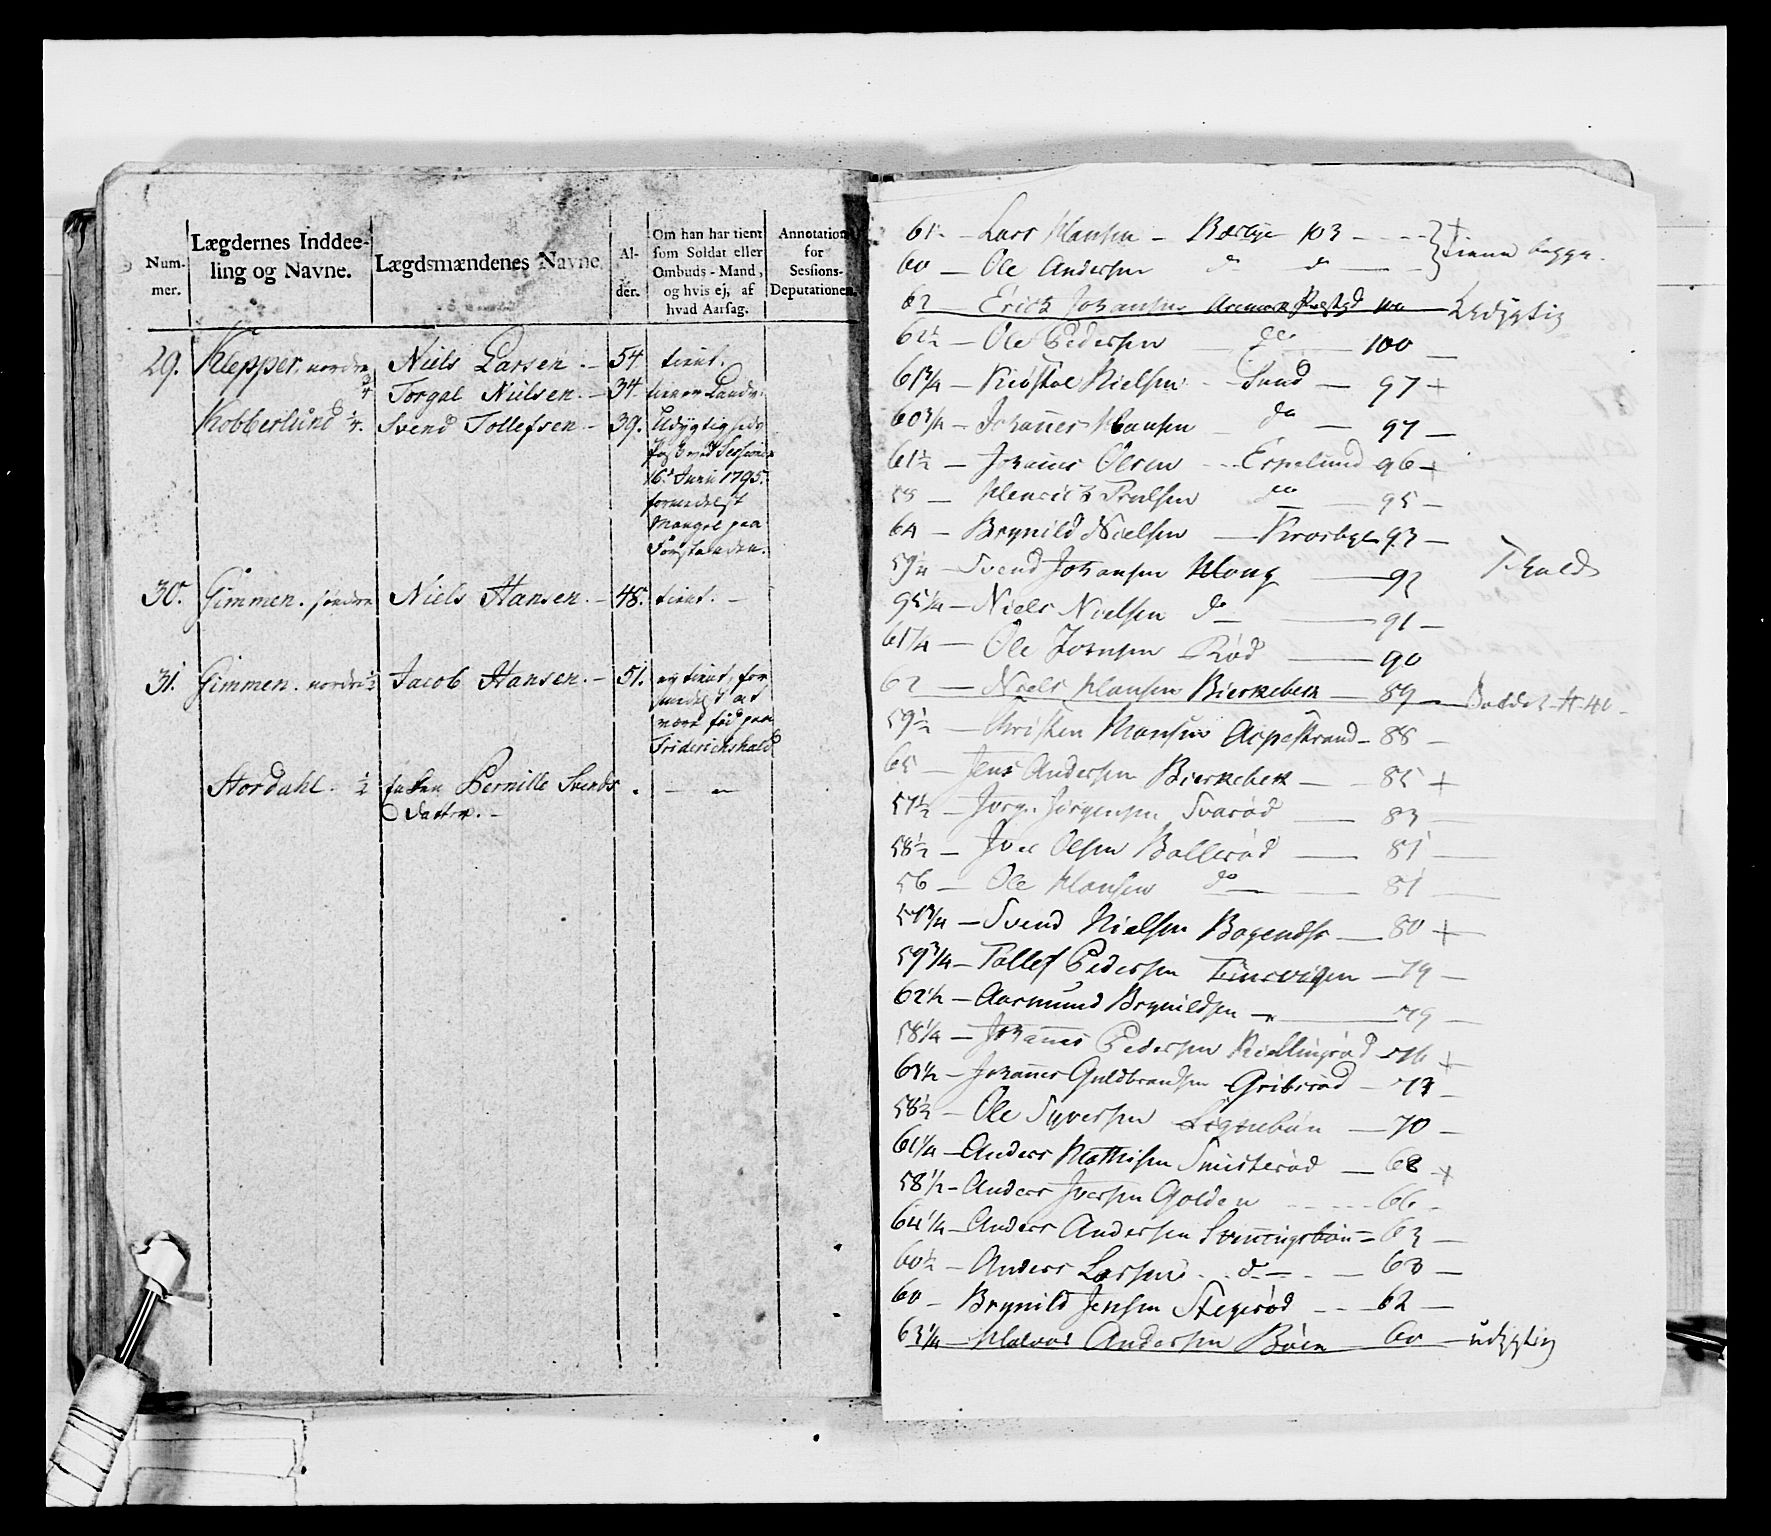 Num-
mer.
Lægdernes Inddee-
ling og Navne.
Lægdsmændenes Navne.
Al-
der.
Om han har tient
som Soldat eller
Ombuds-Mand,
og hvis ej, af
hvad Aarsag.
Annotation
for
Sessions-
Deputationen.
29. Klepper nordre 3/4 Niels Larsen. - 54 tient.
Torgal Nielsen. - 34. tiener Landv.
Kobberlund 1/4. Svend Tollefsen - 39. Udygtigheds
Pas ved Session
16de Junii 1795.
formedelst
Mangel paa
Forstanden.
30. Gimmen. søndre Niels Hansen. - 48. tient. -
31. Gimmen. nordre 1/2 Jacob Hansen. - 51. ey tient, for
medelst at
være fød paa
Friderichshald
Stordahl. 1/2 Enken Pernille Svends
Datter. -
61 - Lars Hansen - Bærbye 103 - - - -
60 - Ole Andersen do do - tiener begge.
62 - Erick Johansen Aremark Præstgd 100 - Udygtig
62 1/2 - Ole Pedersen do - 100 -
61 3/4 - Kiøstol Nielsen - Sund - 97 +
60 3/4 - Johannes Hansen do - 97 -
61 1/2 - Johannes Olsen - Espelund 96 +
58 - Henrich Troelsen do - 95 -
64 - Brynild Nielsen - Krosbye 93 -
59 1/4 - Svend Johansen Houg - 92
95 1/4 - Niels Nielsen do - 91 -
61 1/4 - Ole Johnsen Rød - 90
62 - Niels Hansen Bierkebek - 89 -
59 1/2 - Christen Hansen Aspestrand - 88 -
65 - Jens Andersen Bierkebek - 85 +
57 1/2 - Jørgen Jørgensen Svarød - 83 -
58 1/2 - Iver Olsen Bollerød - 81 -
56 - Ole Hansen do - 81 -
57 3/4 - Svend Nielsen - 80 +
59 3/4 - Tollef Pedersen - 79 -
62 1/2 - Aasmund Brynildsen - 79 -
58 1/4 - Johannes Pedersen Kiellingrød - 76 +
63 1/2 - Johannes Guldbrandsen Gribsrød - 73 -
58 1/2 - Ole Syversen - 70 -
61 1/4 - Anders Mathisen Smisterød - 68 +
58 1/2 - Anders Iversen Golden - 66 -
64 1/4 - Anders Andersen - 63 -
60 1/2 - Anders Larsen - do - 63 -
60 - Brynild Jensen Stegerød - 62 -
63 1/4 - Halvor Andersen Bøen - 60 - udygtig